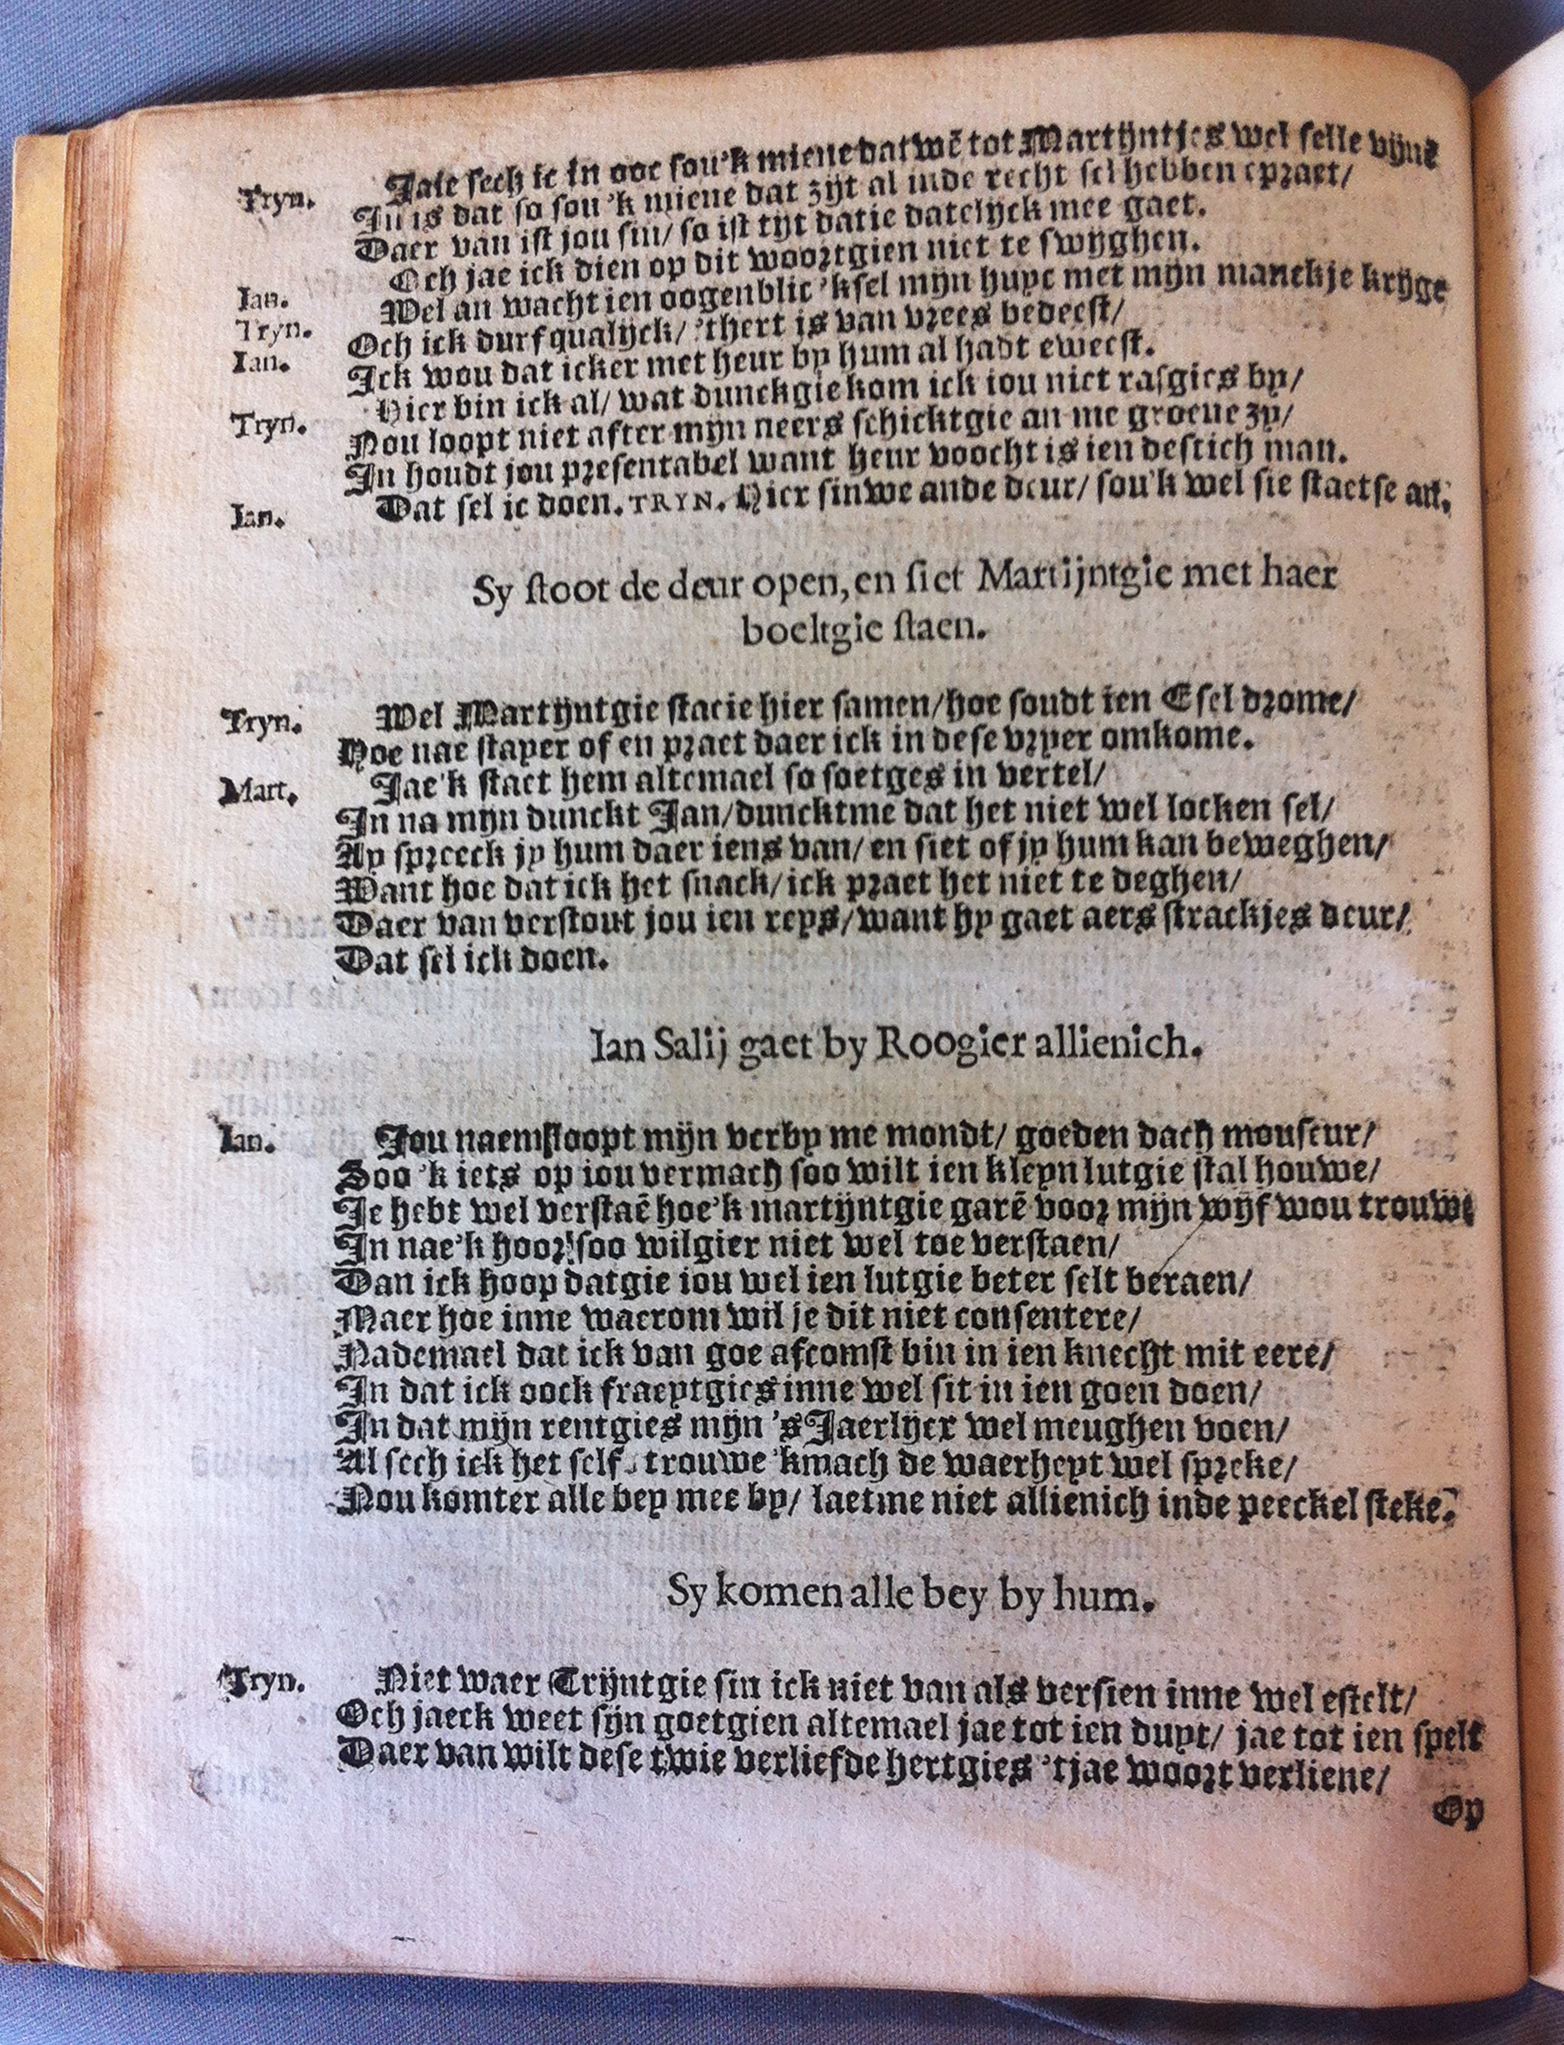 Tryn. Jaie sech ic in ooc sou'k miene datwē tot Martijntjes wel selle vijnē
In is dat so sou'k miene dat zijt al inde recht sel hebben epraet/
Daer van ist jou sin/ so ist tijt datie datelijck mee gaet.
Ian. Och jae ick dien op dit woortgien niet te swijghen.
Tryn. Wel an wacht ien oogenblic 'ksel mijn huyc met mijn manckje krijge
Ian. Och ick durf qualijck/ 'thert is van vrees bedeest/
Ick wou dat icker met heur by hum al hadt eweest.
Tryn. Hier bin ick al/ wat dunckgie kom ick iou niet rasgies by/
Nou loopt niet after mijn neers schicktgie an me groene zy/
In houdt jou presentabel want heur voocht is ien destich man.
Ian. Dat sel ic doen. TRYN. Hier sinwe ande deur/ sou'k wel sie staetse an.
Sy stoot de deur open, en siet Martijntgie met haer
boeltgie staen.
Tryn. Wel Martijntgie staeie hier samen/hoe soudt ien Esel drome/
Hoe nae stayer of en praet daer ick in dese vryer omkome.
Mart. Jae'k staet hem altemael so soetges in vertel/
In na mijn dunckt Jan/duncktme dat het niet wel locken sel/
Ay spreeck jy hum daer iens van/ en siet of jy hum kan beweghen/
Want hoe dat ick het snack/ick praet het niet te deghen/
Daer van verstout jou ien reys/want hy gaet aers strackjes deur/
Dat sel ick doen.
Ian Salij gaet by Roogier allienich.
Ian. Jou naem sloopt mijn verby me mondt/ goeden dach monseur/
Soo 'k iets op iou vermach soo wilt ien kleyn lutgie stal houwe/
Je hebt wel verstaē hoe'k martijntgie garē voor mijn wijf wou trouwe
In nae'k hoor soo wilgier niet wel toe verstaen/
Dan ick hoop datgie iou wel ien lutgie beter selt beraen/
Maer hoe inne waerom wil je dit niet consentere/
Nademael dat ick van goe afcomst bin in ien knecht mit eere/
In dat ick oock fraeytgies inne wel sit in ien goen doen/
In dat mijn rentgies mijn 's Jaerlijcx wel meughen voen/
Al sech ick het self trouwe 'kmach de waerheyt wel spreke/
Nou komter alle bey mee by/ laetme niet allienich inde peeckel steke.
Sy komen alle bey by hum.
Tryn. Niet waer Trijntgie sin ick niet van als versien inne wel estelt/
Och jaeck weet sijn goetgien altemael jae tot ien duyt/ jae tot ien spelt
Daer van wilt dese twie verliefde hertgies 'tjae woort verliene/
Op